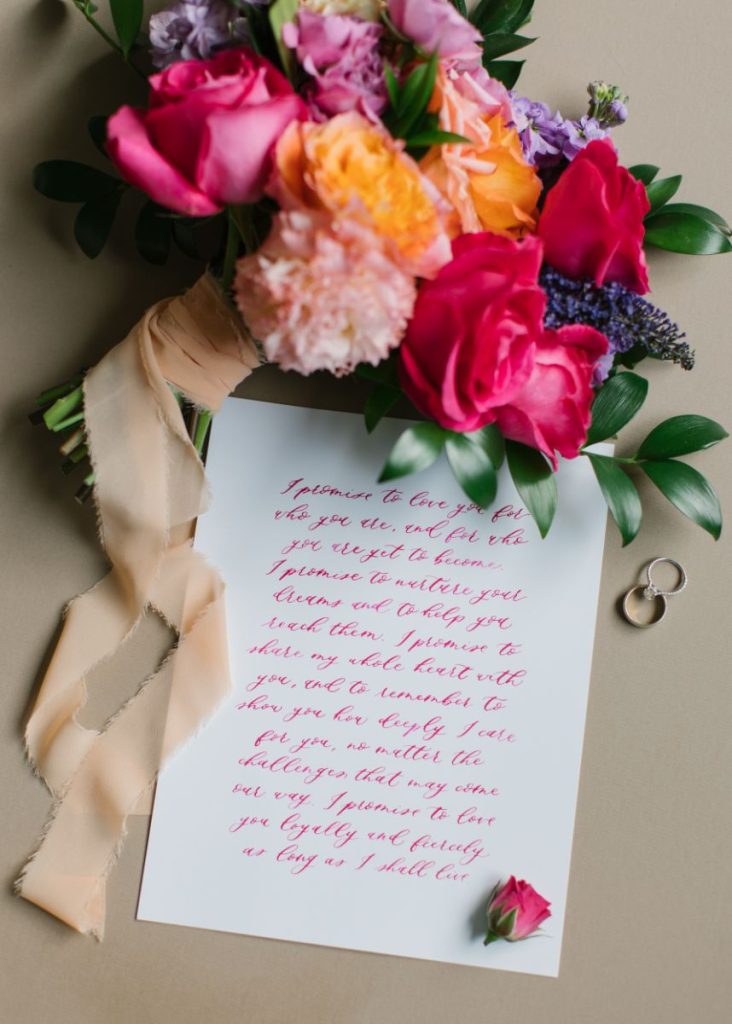 I promise to love you for
who you are, and for who
you are yet to become.
I promise to nurture your
dreams and to help you
reach them. I promise to
share my whole heart with
you, and to remember to
show you how deeply I care
for you, no matter the
challenges that may come
our way. I promise to love
you loyally and fiercely
as long as I shall live